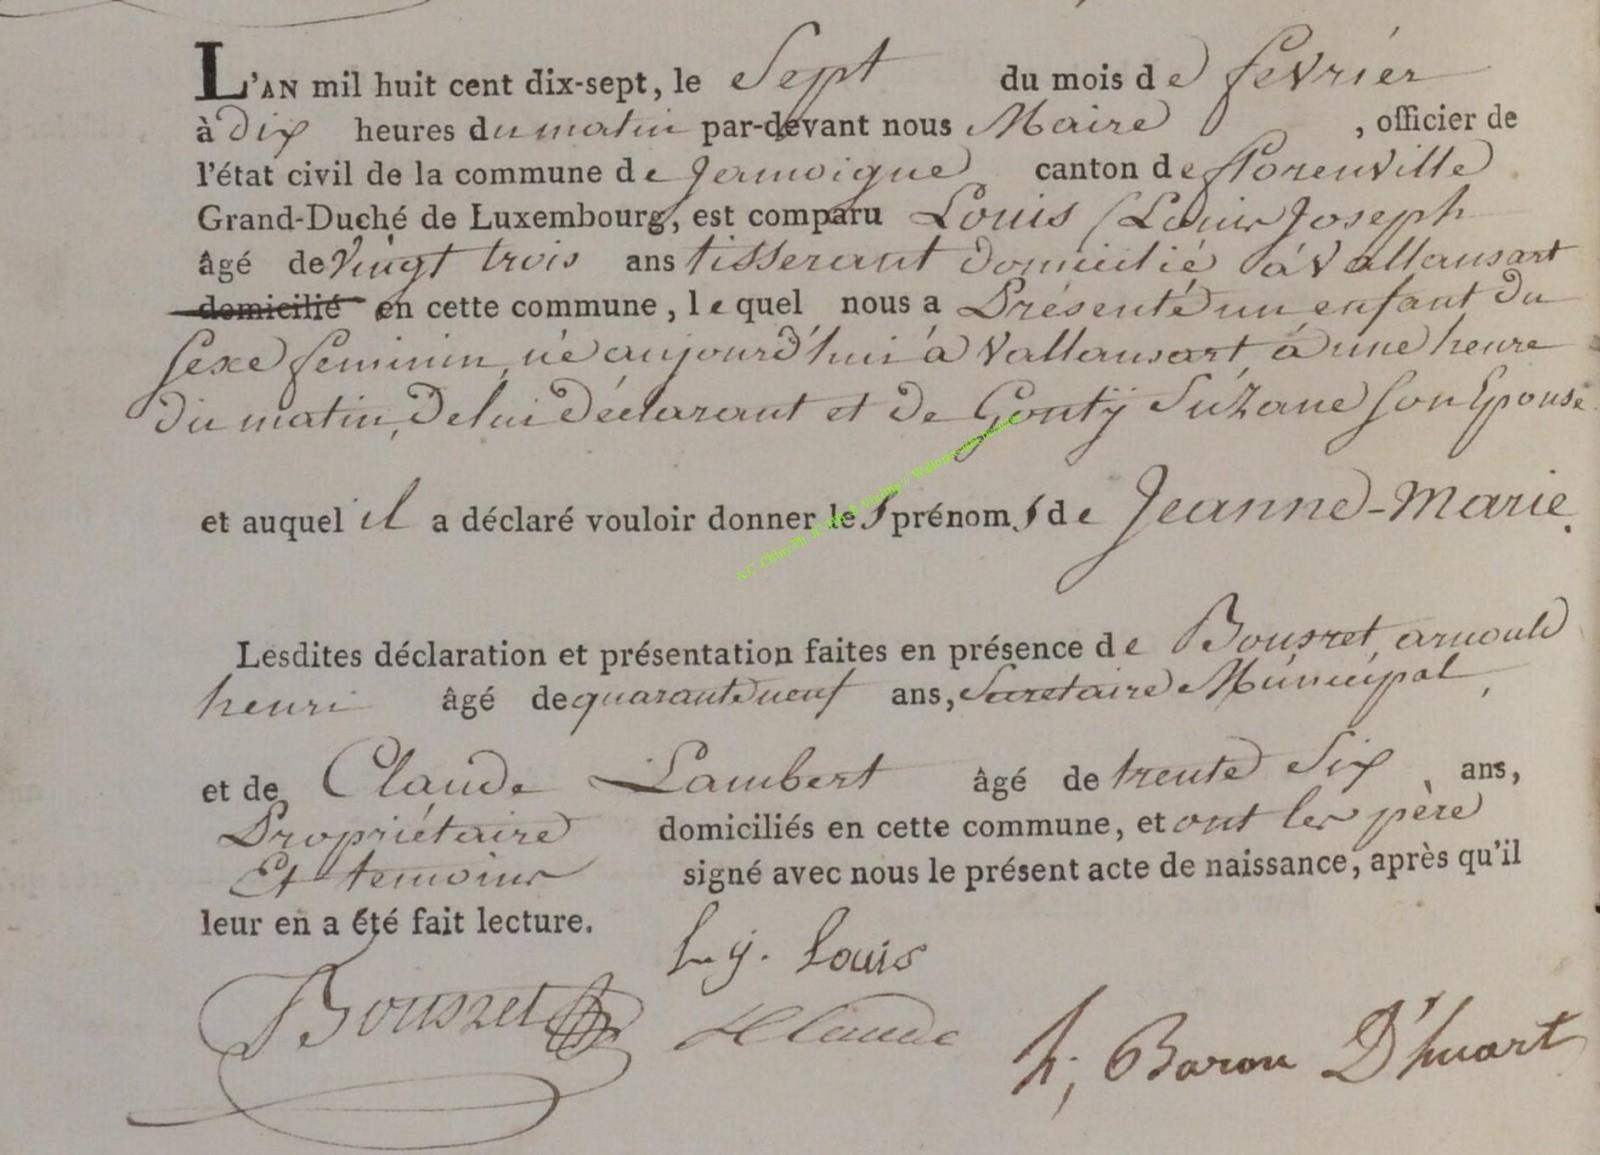 L'AN mil huit cent dix-sept, le Sept du mois de février
à dix heures du matin par-devant nous Maire , officier de
l'état civil de la commune de Jamoigne canton de florenville
Grand-Duché de Luxembourg, est comparu Louis Louis Joseph
âgé de Vingt trois ans tisserant domicilié à Vallansart
domicilié en cette commune, lequel nous a Présenté un enfant du
sexe feminin, né aujourd'hui à Vallansart, à une heure
du matin, de lui déclarant et de Gouty Suzane son Epouse
et auquel il a déclaré vouloir donner les prénoms de Jeanne-Marie.
Lesdites déclaration et présentation faites en présence de Bousret, arnould
henri âgé de quarante neuf ans, Secretaire Municipal,
et de Claude Lambert âgé de trente Six ans,
Propriétaire domiciliés en cette commune, et ont les père
Et temoins signé avec nous le présent acte de naissance, après qu'il
leur en a été fait lecture.
L. j. Louis
Bousret Claude
h, Baron D'huart